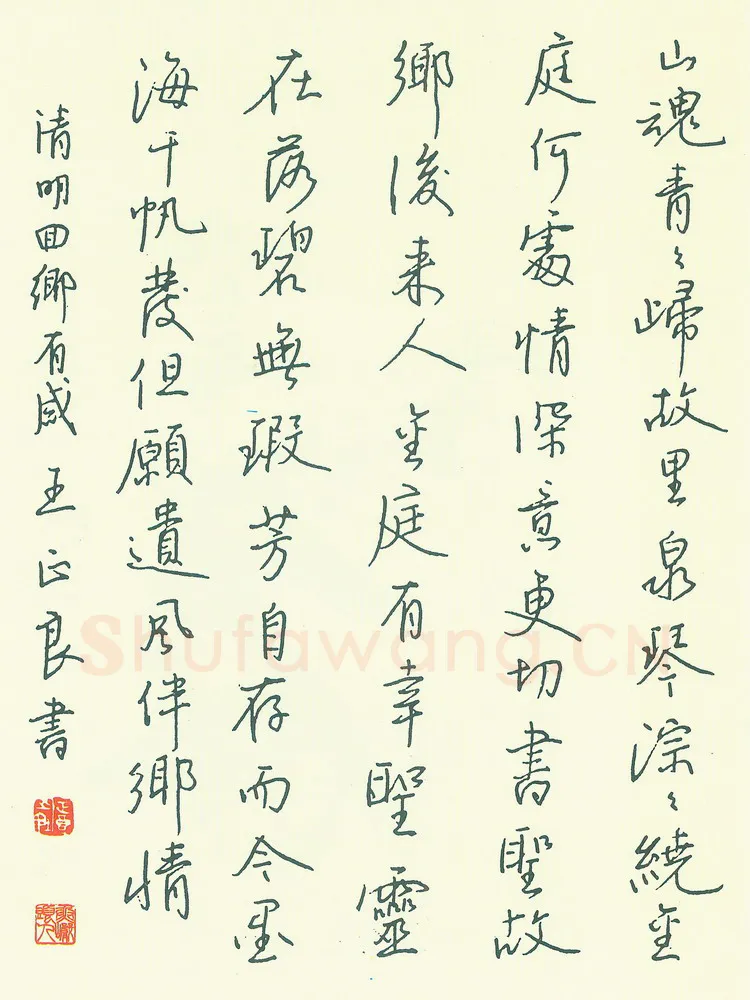 山魂青々歸故里泉琴淙々繞金
庭何處情深意更切書聖故
鄉後来人金庭有幸聖靈
在落碧無瑕芳自存而今墨
海千帆發但願遺風伴鄉情
清明回鄉有感 王正良書
Shufawang.CN